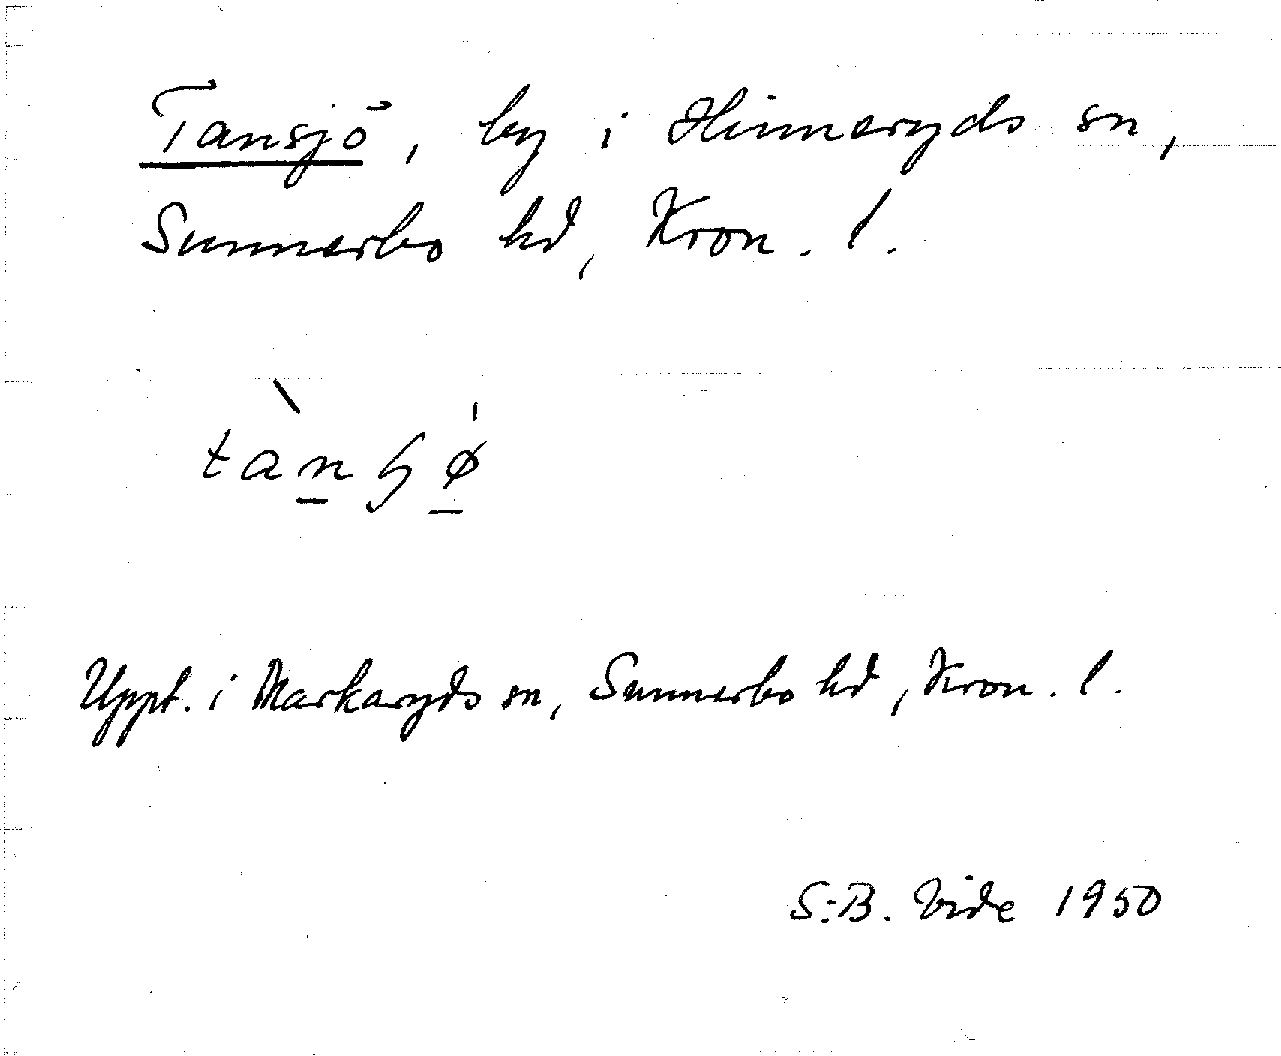 Tansjö, by i Hinneryds sn,
Sunnerbo hd, Kron. l.
Uppt. i Markaryds sn, Sunnerbo hd, Kron. l.
S-B. Vide 1950